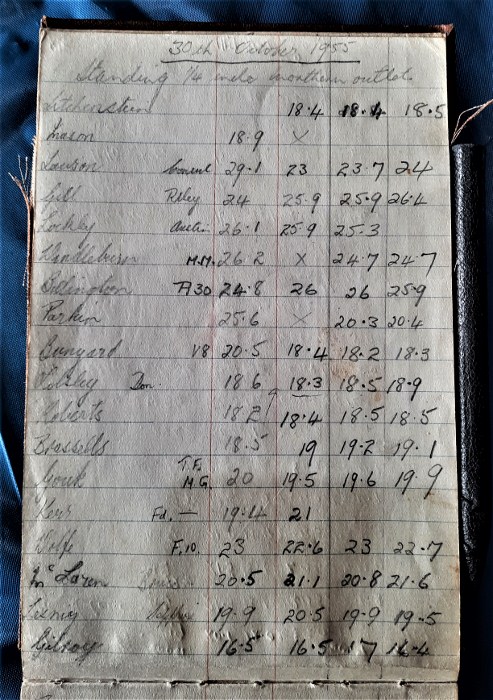 30th October 1955
Standing 1/4 mile
Litchenstein 18.4 18.4 18.5
Mason 18.9 X
Lawson 29.1 23 23.7 24
Gill Riley 24 25.9 25.9 26.4
Lockley Austin 26.1 25.9 25.3
M.M. 26.2 X 24.7 24.7
A30 24.8 26 26 25.9
Parkin 25.6 X 20.3 20.4
Bunyard V8 20.5 18.4 18.2 18.3
Don. 18 6 18.3 18.5 18.9
Roberts 18 2 18.4 18.5 18.5
18.5 19 19.2 19.1
T.F.
Gouk M.G. 20 19.5 19.6 19.9
Keys Fd. — 19.4 21
Wolfe F.10. 23 22.6 23 22.7
McLaren 20.5 21.1 20.8 21.6
19.9 20.5 19.9 19.5
Gilroy 16.5 16.5 17 16.4